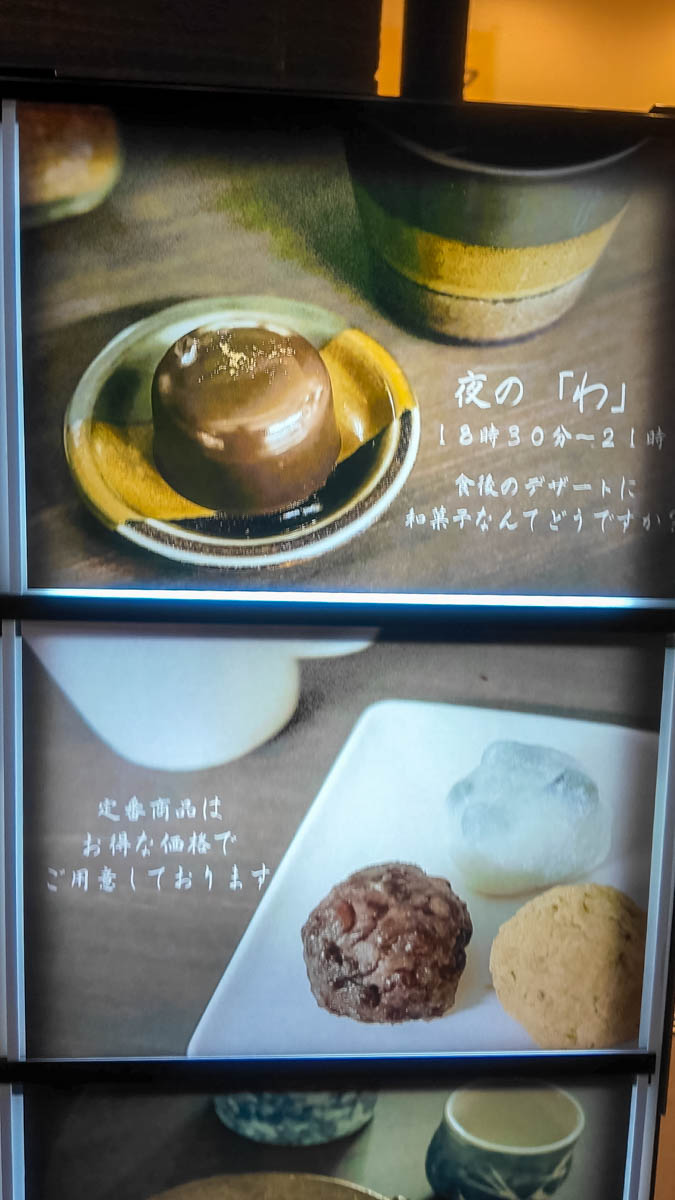 夜の「わ」
18時30分〜21時
食後のデザートに
和菓子なんてどうですか?
定番商品は
お得な価格で
ご用意しております